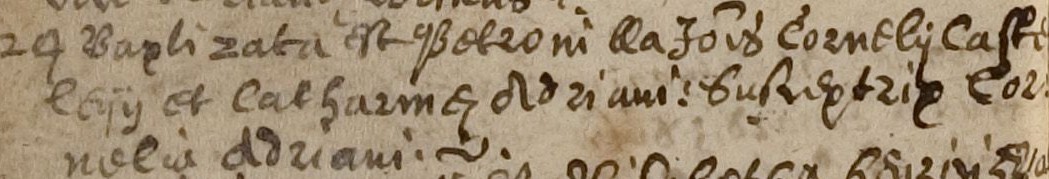 24 Baptizata est Petronilla Jois Cornelij Caste
leijn et Catharinae Adriani: Susceptrix Cor:
nelia Adriani.